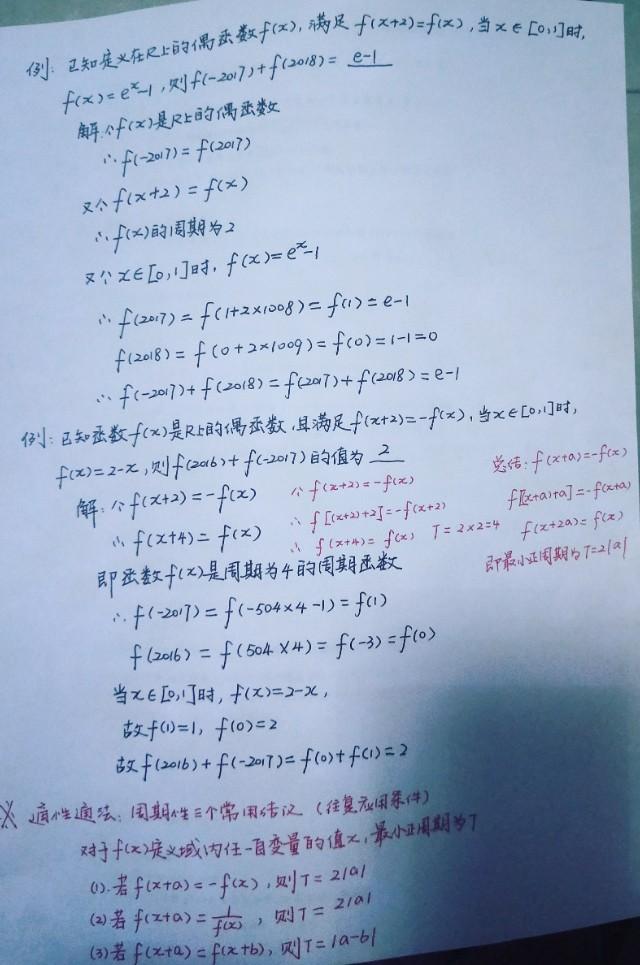 例: 已知定义在R上的偶函数f(x), 满足 f(x+2)=f(x), 当x∈[0,1]时,
f(x)=eˣ-1, 则f(-2017)+f(2018)= e-1
解:∵f(x)是R上的偶函数
∴f(-2017)=f(2017)
又∵f(x+2)=f(x)
∴f(x)的周期为2
又∵x∈[0,1]时, f(x)=eˣ-1
∴f(2017)=f(1+2×1008)=f(1)=e-1
f(2018)=f(0+2×1009)=f(0)=1-1=0
∴f(-2017)+f(2018)=f(2017)+f(2018)=e-1
例:已知函数f(x)是R上的偶函数,且满足f(x+2)=-f(x),当x∈[0,1]时,
f(x)=2-x,则f(2016)+f(-2017)的值为 2
解:∵f(x+2)=-f(x)
∴f(x+4)=f(x)
∵f(x+2)=-f(x)
∴f[(x+2)+2]=-f(x+2)
∴f(x+4)=f(x) T=2×2=4
总结:f(x+a)=-f(x)
f[(x+a)+a]=-f(x+a)
f(x+2a)=f(x)
即最小正周期为T=2|a|
即函数f(x)是周期为4的周期函数
∴f(-2017)=f(-504×4-1)=f(1)
f(2016)=f(504×4)=f(-3)=f(0)
当x∈[0,1]时,f(x)=2-x,
故f(1)=1, f(0)=2
故f(2016)+f(-2017)=f(0)+f(1)=2
※ 通性通法:周期性三个常用结论 (往复应用条件)
对于f(x)定义域内任一自变量的值x,最小正周期为T
(1).若f(x+a)=-f(x),则T=2|a|
(2)若f(x+a)=1/f(x), 则T=2|a|
(3)若f(x+a)=f(x+b),则T=|a-b|